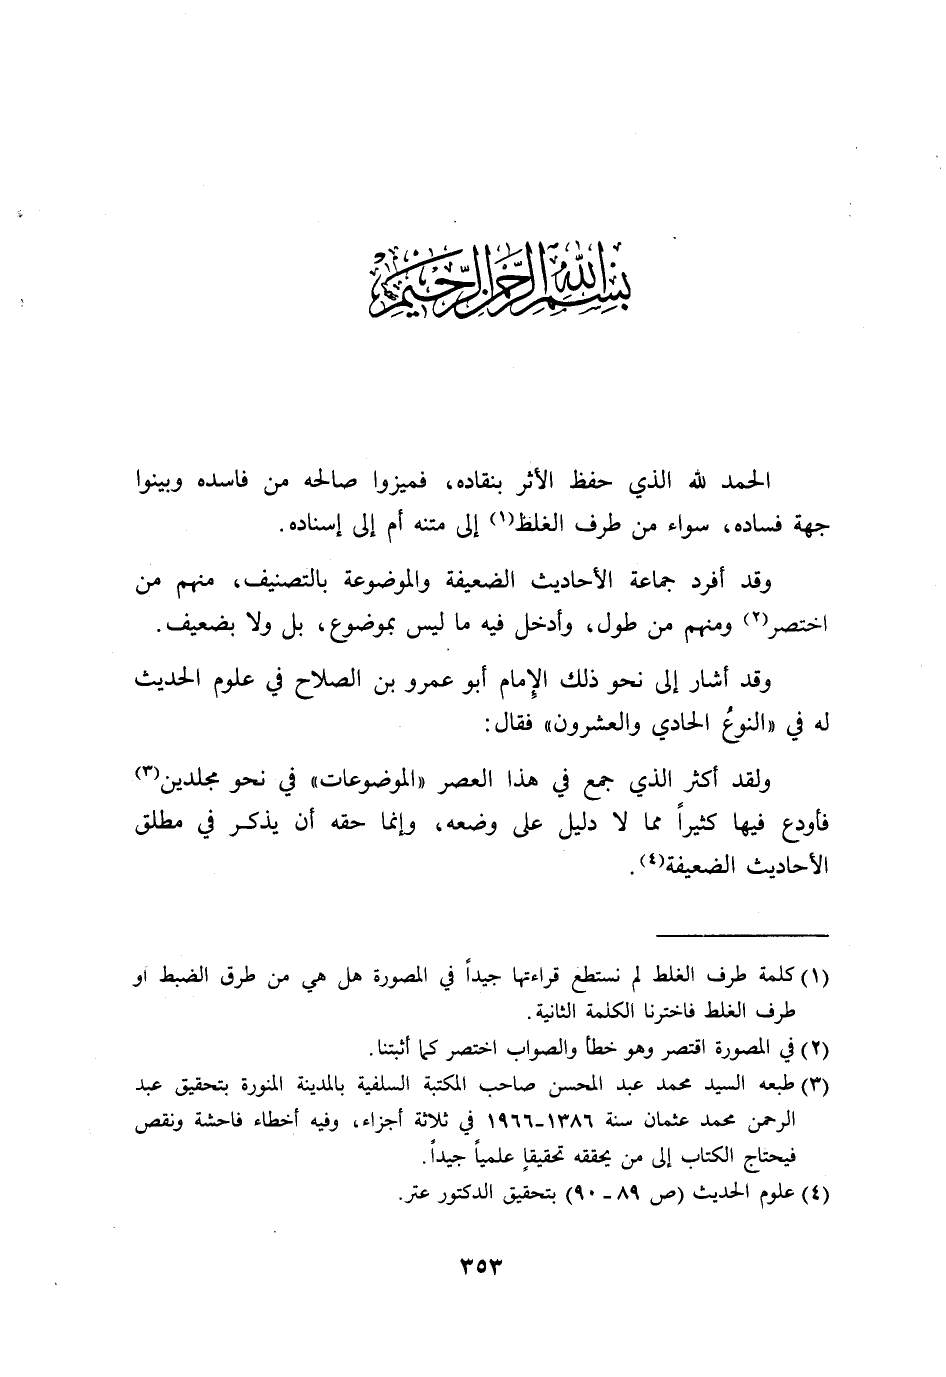 بسم الله الرحمن الرحيم
الحمد لله الذي حفظ الأثر بنقاده، فميزوا صالحه من فاسده وبينوا
جهة فساده، سواء من طرف الغلظ(١) إلى متنه أم إلى إسناده.
وقد أفرد جماعة الأحاديث الضعيفة والموضوعة بالتصنيف، منهم من
اختصر(٢) ومنهم من طول، وأدخل فيه ما ليس بموضوع، بل ولا بضعيف.
وقد أشار إلى نحو ذلك الإمام أبو عمرو بن الصلاح في علوم الحديث
له في «النوعُ الحادي والعشرون» فقال:
ولقد أكثر الذي جمع في هذا العصر «الموضوعات» في نحو مجلدين(٣)
فأودع فيها كثيراً مما لا دليل على وضعه، وإنما حقه أن يذكر في مطلق
الأحاديث الضعيفة(٤).
(١) كلمة طرف الغلط لم نستطع قراءتها جيداً في المصورة هل هي من طرق الضبط او
طرف الغلط فاخترنا الكلمة الثانية.
(٢) في المصورة اقتصر وهو خطأ والصواب اختصر كما أثبتنا.
(٣) طبعه السيد محمد عبد المحسن صاحب المكتبة السلفية بالمدينة المنورة بتحقيق عبد
الرحمن محمد عثمان سنة ١٣٨٦-١٩٦٦ في ثلاثة أجزاء، وفيه أخطاء فاحشة ونقص
فيحتاج الكتاب إلى من يحققه تحقيقاٍ علمياً جيداً.
(٤) علوم الحديث (ص ٨٩ - ٩٠) بتحقيق الدكتور عتر.
٣٥٣